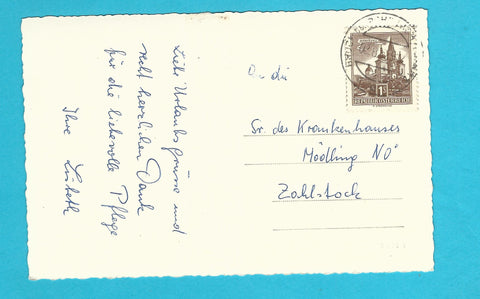 Liebe Urlaubsgrüsse und
recht herzlichen Dank
für die liebevolle Pflege
Ihre Lisbeth
An die
Sr. des Krankenhauses
Mödling NÖ
Zahlstock
1S
REPUBLIK ÖSTERREICH